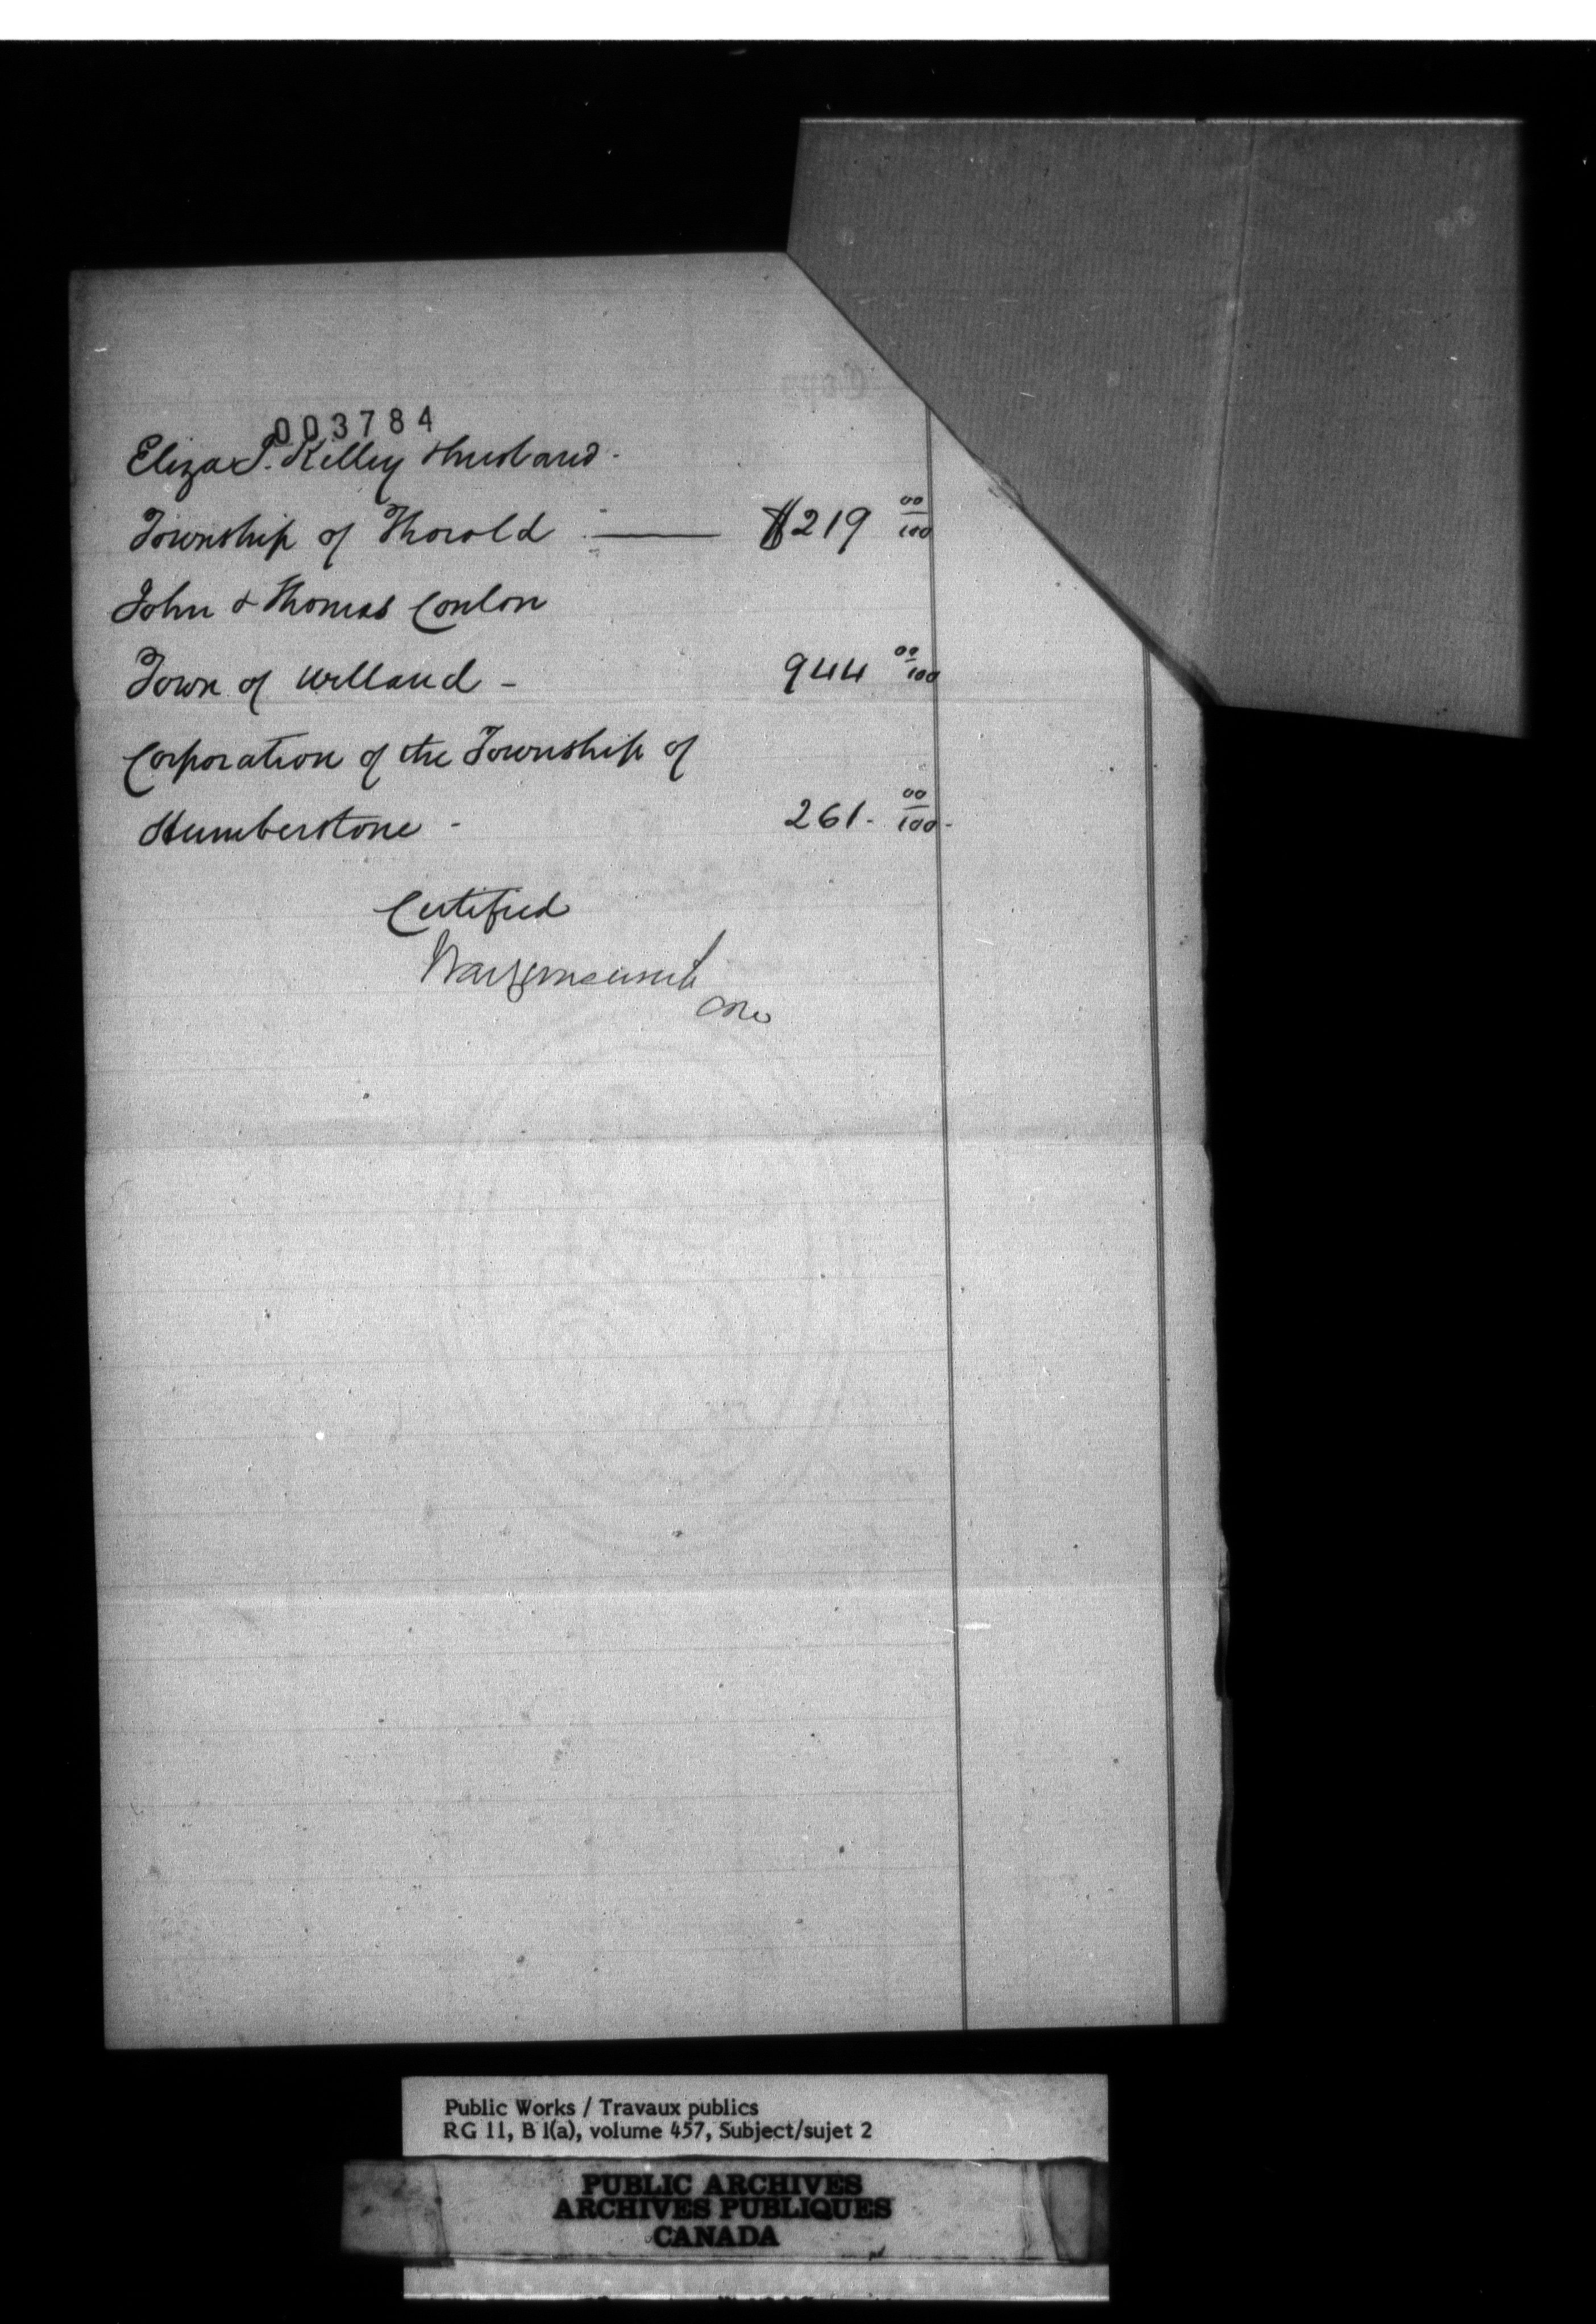 003784
Eliza S. Kelley Husband -
Township of Thorold — $219 00/100
John & Thomas Conlon
Town of Welland - 944 00/100
Corporation of the Township of
Humberstone - 261. 00/100 -
Certified
Public Works / Travaux publics
RG 11, B 1(a), volume 457, Subject/sujet 2
PUBLIC ARCHIVES
ARCHIVES PUBLIQUES
CANADA